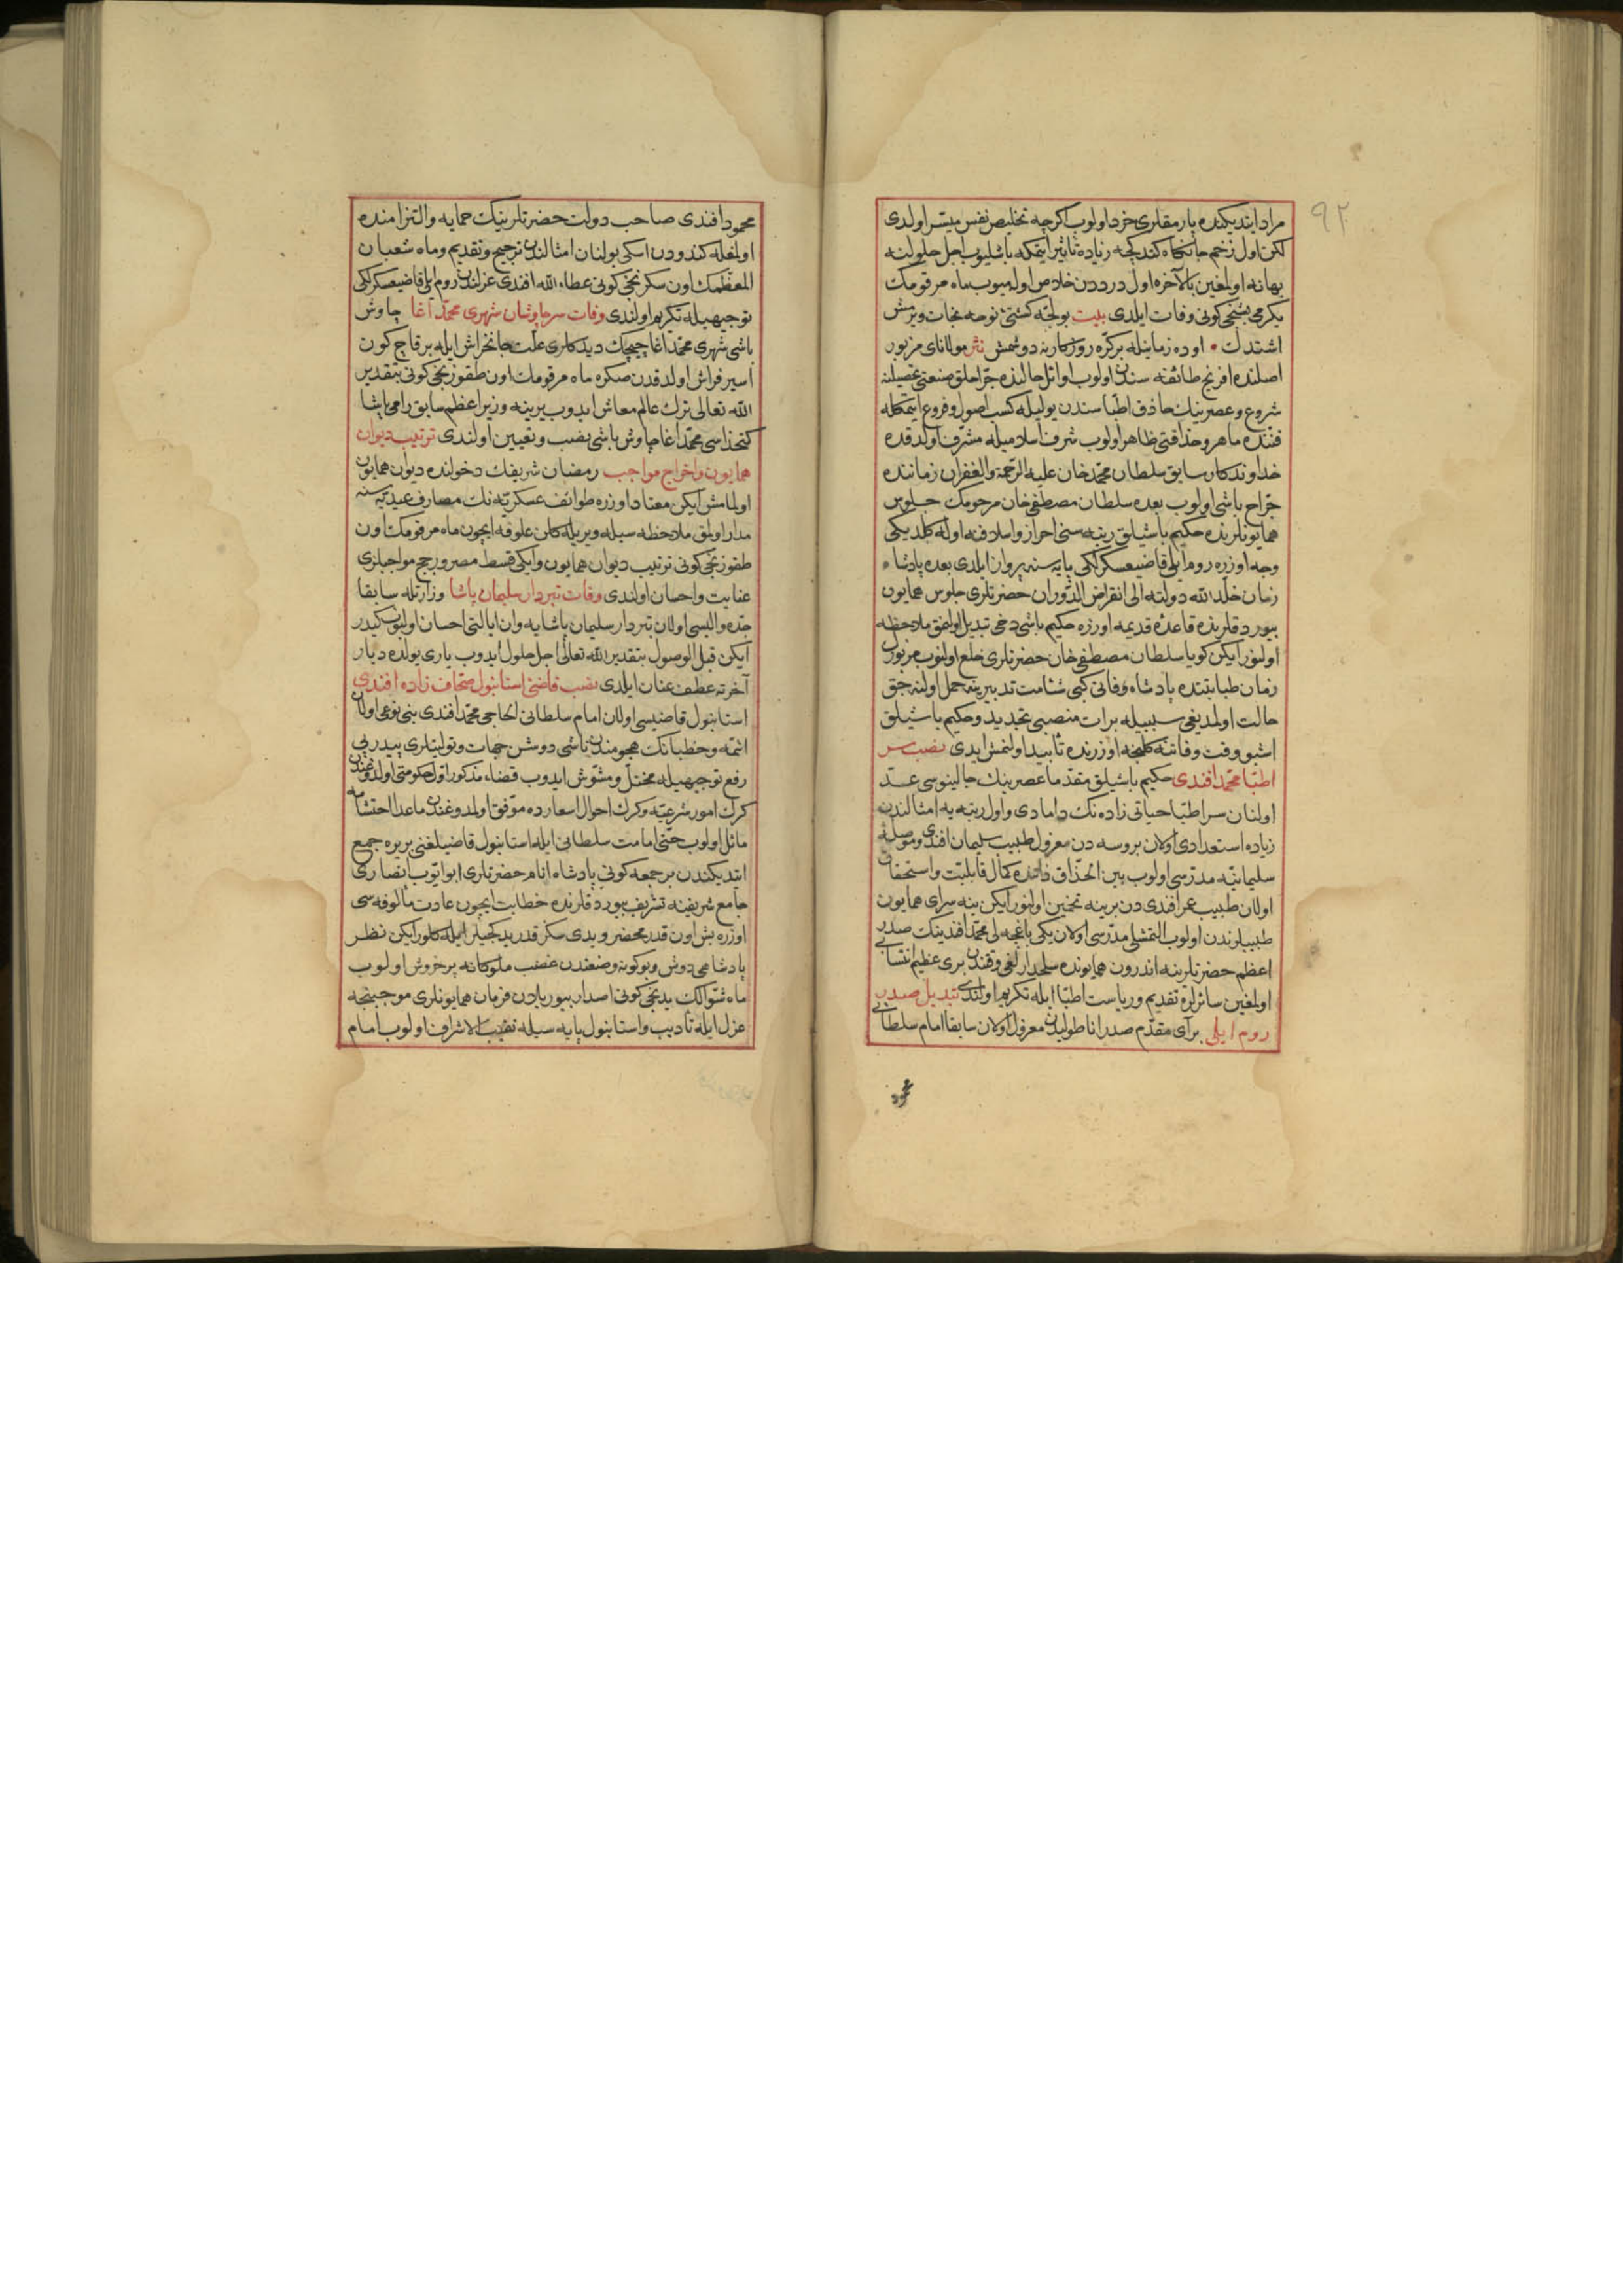 ٩٢
مراد ايتديكنده پارمقلرى خرد اولوب اكرچه تخليص نفس ميسر اولدى
لكن اول زخم جانكاه كندكجه زياده تأثير ايتمكه باشليوب اجل حلولنه
بهانه اولمغين بالآخره اول درددن خلاص اولميوب ماه مرقومك
يكرمى بشنجى كونى وفات ايلدى بيت بو لجّه كشتئ نوحه نجات ويرمش
اشتدك • اوده زمانيله بر كره روزكارينه دوشمش نثر مولاناى مزبور
اصلنده افرنج طائفه سندن اولوب اوائل حالنده جرّاحلق صنعتى تحصيلنه
شروع وعصرينك حاذق اطبّاسندن يوليله كسب اصول وفروع ايتمكله
فننده ماهر وحذاقتى ظاهر اولوب شرف اسلاميله مشرّف اولدقده
خداوندكار سابق سلطان محمّد خان عليه الرّحمة والغفران زماننده
جرّاح باشى اولوب بعده سلطان مصطفى خان مرحومك جلوس
همايونلرنده حكيم باشيلق رتبه سنى احراز واسلافنه اوله كلديكى
وجه اوزره روم ايلى قاضيعسكرلكى پايه سنه پرواز ايلدى بعده پادشاه
زمان خلّد اللّه دولته الى انقراض الدّوران حضرتلرى جلوس همايون
بيوردقلرنده قاعدهٔ قديمه اوزره حكيم باشى دخى تبديل اولنمق ملاحظه
اولنور ايكن كويا سلطان مصطفى خان حضرتلرى خلع اولنوب مزبورك
زمان طبابتنده پادشاه وفاتى كبى شئامت تدبيرينه حمل اولنه جق
حالت اولمديغى سببيله برات منصبى تجديد وحكيم باشيلق
اشبو وقت وفاتنه كلنجه اوزرنده تأبيد اولنمش ايدى نصب سر
اطبّا محمّد افندى حكيم باشيلق مقدّما عصرينك جالينوسى عدّ
اولنان سر اطبّا حياتى زاده نك دامادى واول رتبه يه امثالندن
زياده استعدادى اولان بروسه دن معزول طبيب سليمان افندى وموصلهٔ
سليمانيّه مدرّسى اولوب بين الحذّاق ذاتنده كمال قابليّت واستحقاق
اولان طبيب عمر افندى دن برينه تخمين اولنور ايكن ينه سراى همايون
طبيبلرندن اولوب التمشلى مدرّسى اولان يكى باغچه لى محمّد افندينك صدر
اعظم حضرتلرينه اندرون همايونده سلحدارلغى وقتندن برى عظيم انتسابى
اولمغين سائرلره تقديم ورياست اطبّا ايله تكريم اولندى تبديل صدر
روم ايلى برآى مقدّم صدر اناطوليدن معزول اولان سابقا امام سلطانى
محمود
محمود افندى صاحب دولت حضرتلرينك حمايه والتزامنده
اولمغله كندودن اسكى بولنان امثالندن ترجيح وتقديم وماه شعبان
المعظّمك اون سكزنجى كونى عطاء اللّه افندى عزلندن روم ايلى قاضيعسكرلكى
توجيهيله تكريم اولندى وفات سرچاوشان شهرى محمّد آغا چاوش
باشى شهرى محمّد آغا چيچك ديدكلرى علّت جانخراش ايله بر قاچ كون
اسير فراش اولدقدن صكره ماه مرقومك اون طقوزنجى كونى بتقدير
اللّه تعالى ترك عالم معاش ايدوب يرينه وزير اعظم سابق رامى پاشا
كتخداسى محمّد آغا چاوش باشى نصب وتعيين اولندى ترتيب ديوان
همايون واخراج مواجب رمضان شريفك دخولنده ديوان همايون
اولمامش ايكن معتاد اوزره طوائف عسكريّه نك مصارف عيديّه سنه
مدار اولمق ملاحظه سيله ويريله كلن علوفه ايچون ماه مرقومك اون
طقوزنجى كونى ترتيب ديوان همايون وايكى قسط مصر ورجج مواجبلرى
عنايت واحسان اولندى وفات تبردار سليمان پاشا وزارتله سابقا
جدّه واليسى اولان تبردار سليمان پاشايه وان ايالتى احسان اولنوب كيدر
ايكن قبل الوصول بتقدير اللّه تعالى اجل حلول ايدوب يارى يولده ديار
آخرته عطف عنان ايلدى نصب قاضئ استانبول صحّاف زاده افندى
استانبول قاضيسى اولان امام سلطانى الحاجى محمّد افندى بنى نوعى اولان
ائمّه وخطبانك هجومندن ناشى دوشن جهات وتوليتلرى پيدرپى
رفع توجيهيله مختلّ ومشوّش ايدوب قضاء مذكور اوّل حكومتى اولدوغندن
كرك امور شرعيّه وكرك احوال اسعارده موفّق اولمدوغندن ماعدا احتشامه
مائل اولوب حتّى امامت سلطانى ايله استانبول قاضيلغنى بر يره جمع
ايتديكندن بر جمعه كونى پادشاه انام حضرتلرى ابو ايّوب انصارى
جامع شريفنه تشريف بيوردقلرنده خطابت ايچون عادت مألوفه سى
اوزره بش اون قدر محضر ويدى سكز قدر يدكجيلر ايله كلور ايكن نظر
پادشاهى دوش وبو كونه وضعندن غضب ملوكانه پر خروش اولوب
ماه شوّالك يدنجى كونى اصدار بيوريلان فرمان همايونلرى موجبنجه
عزل ايله تأديب واستانبول پايه سيله نقيب الاشراف اولوب امام